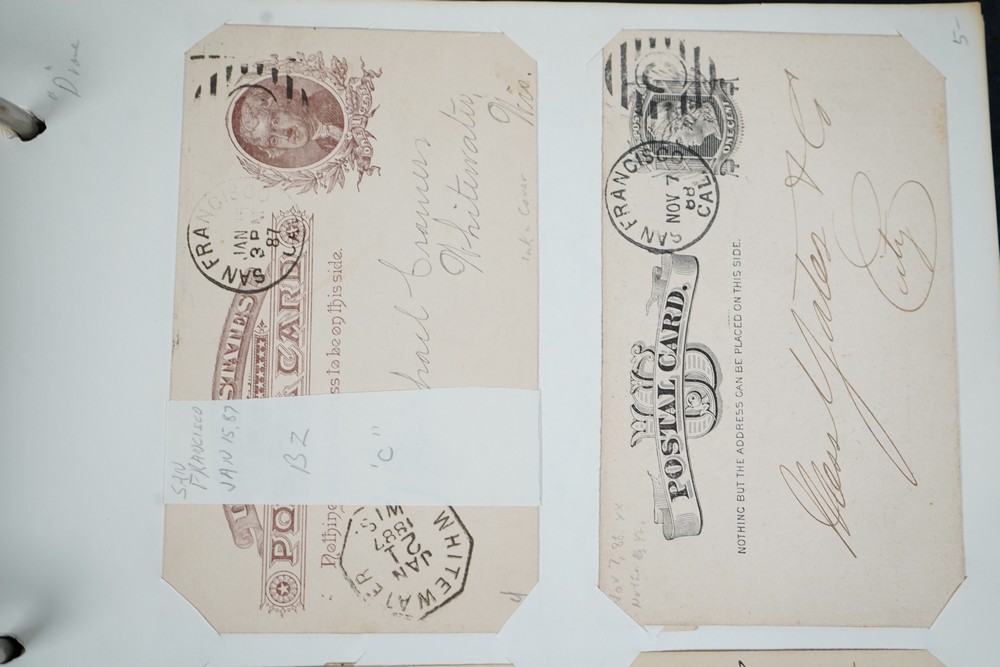 "Dime
5-
SAN FRANCISCO
JAN 15
3 PM
87
CAL
STATES
CARD
Nothing
ess to be on this side.
Cramers
Whitewater,
Wis.
SAN
FRANCISCO
JAN 15, 87
BZ
"C"
WHITEWATER
JAN
21
1887
WIS.
POSTAGE
ONE CENT
SAN FRANCISCO
NOV 7
88
CAL
POSTAL CARD.
NOTHING BUT THE ADDRESS CAN BE PLACED ON THIS SIDE.
Mess Yates & Co
City
NOV 7, 88, XX